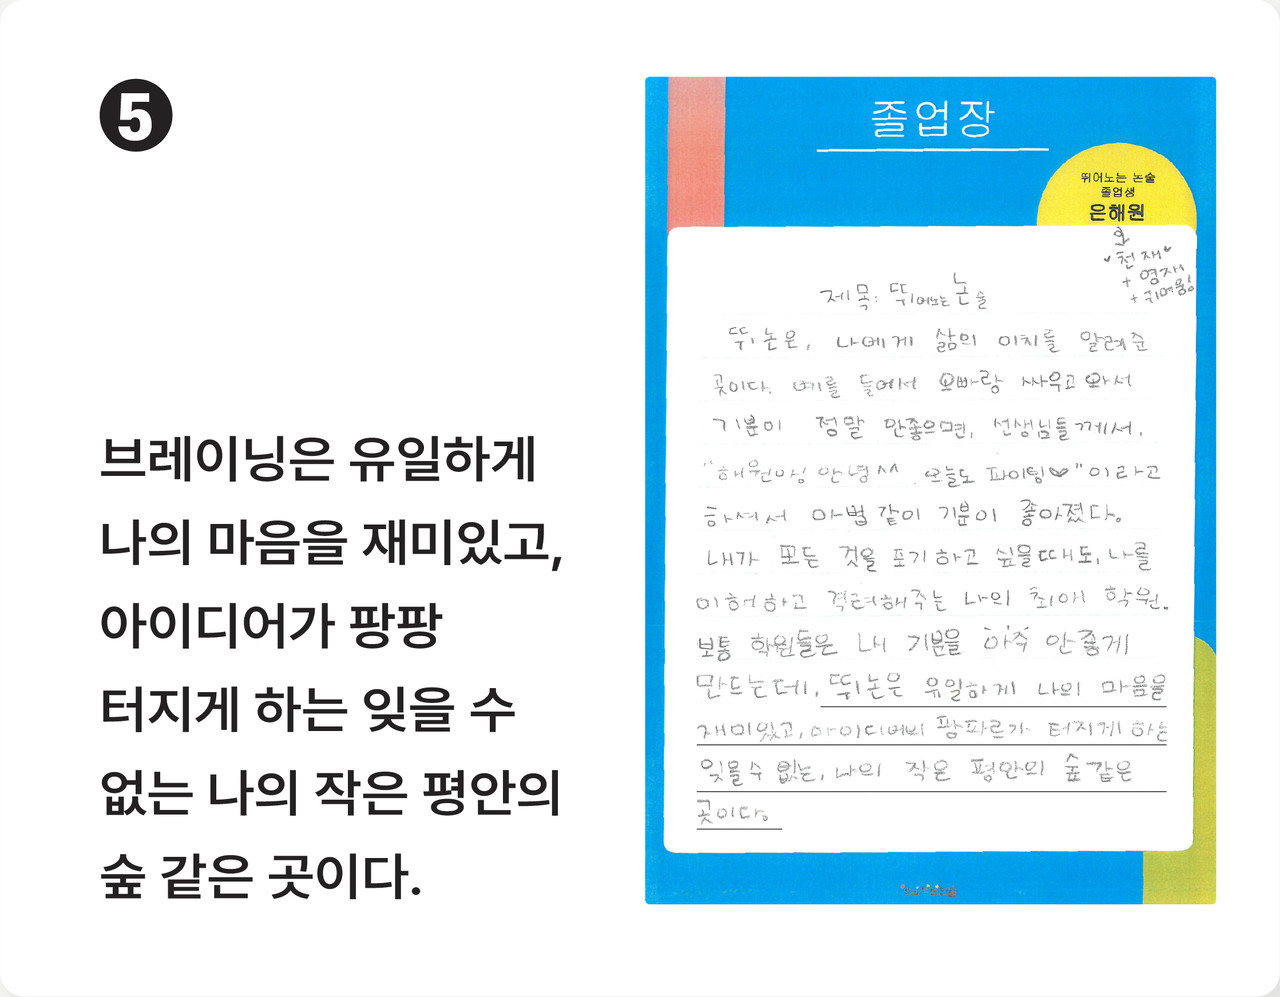 5
브레이닝은 유일하게
나의 마음을 재미있고,
아이디어가 팡팡
터지게 하는 잊을 수
없는 나의 작은 평안의
숲 같은 곳이다.
졸업장
뛰어노는 논술
졸업생
은해원
천재
+ 영재
+ 귀여움
제목: 뛰어노는 논술
뛰논은, 나에게 삶의 이치를 알려준
곳이다. 예를 들어서 오빠랑 싸우고 와서
기분이 정말 안좋으면, 선생님들께서,
"해원아 안녕^^ 오늘도 파이팅♥" 이라고
하셔서 마법 같이 기분이 좋아졌다.
내가 모든 것을 포기하고 싶을때도, 나를
이해하고 격려해주는 나의 최애 학원.
보통 학원들은 내 기분을 아주 안좋게
만드는데, 뛰논은 유일하게 나의 마음을
재미있고, 아이디어비 팡파르가 터지게 하는
잊을수 없는, 나의 작은 평안의 숲 같은
곳이다.